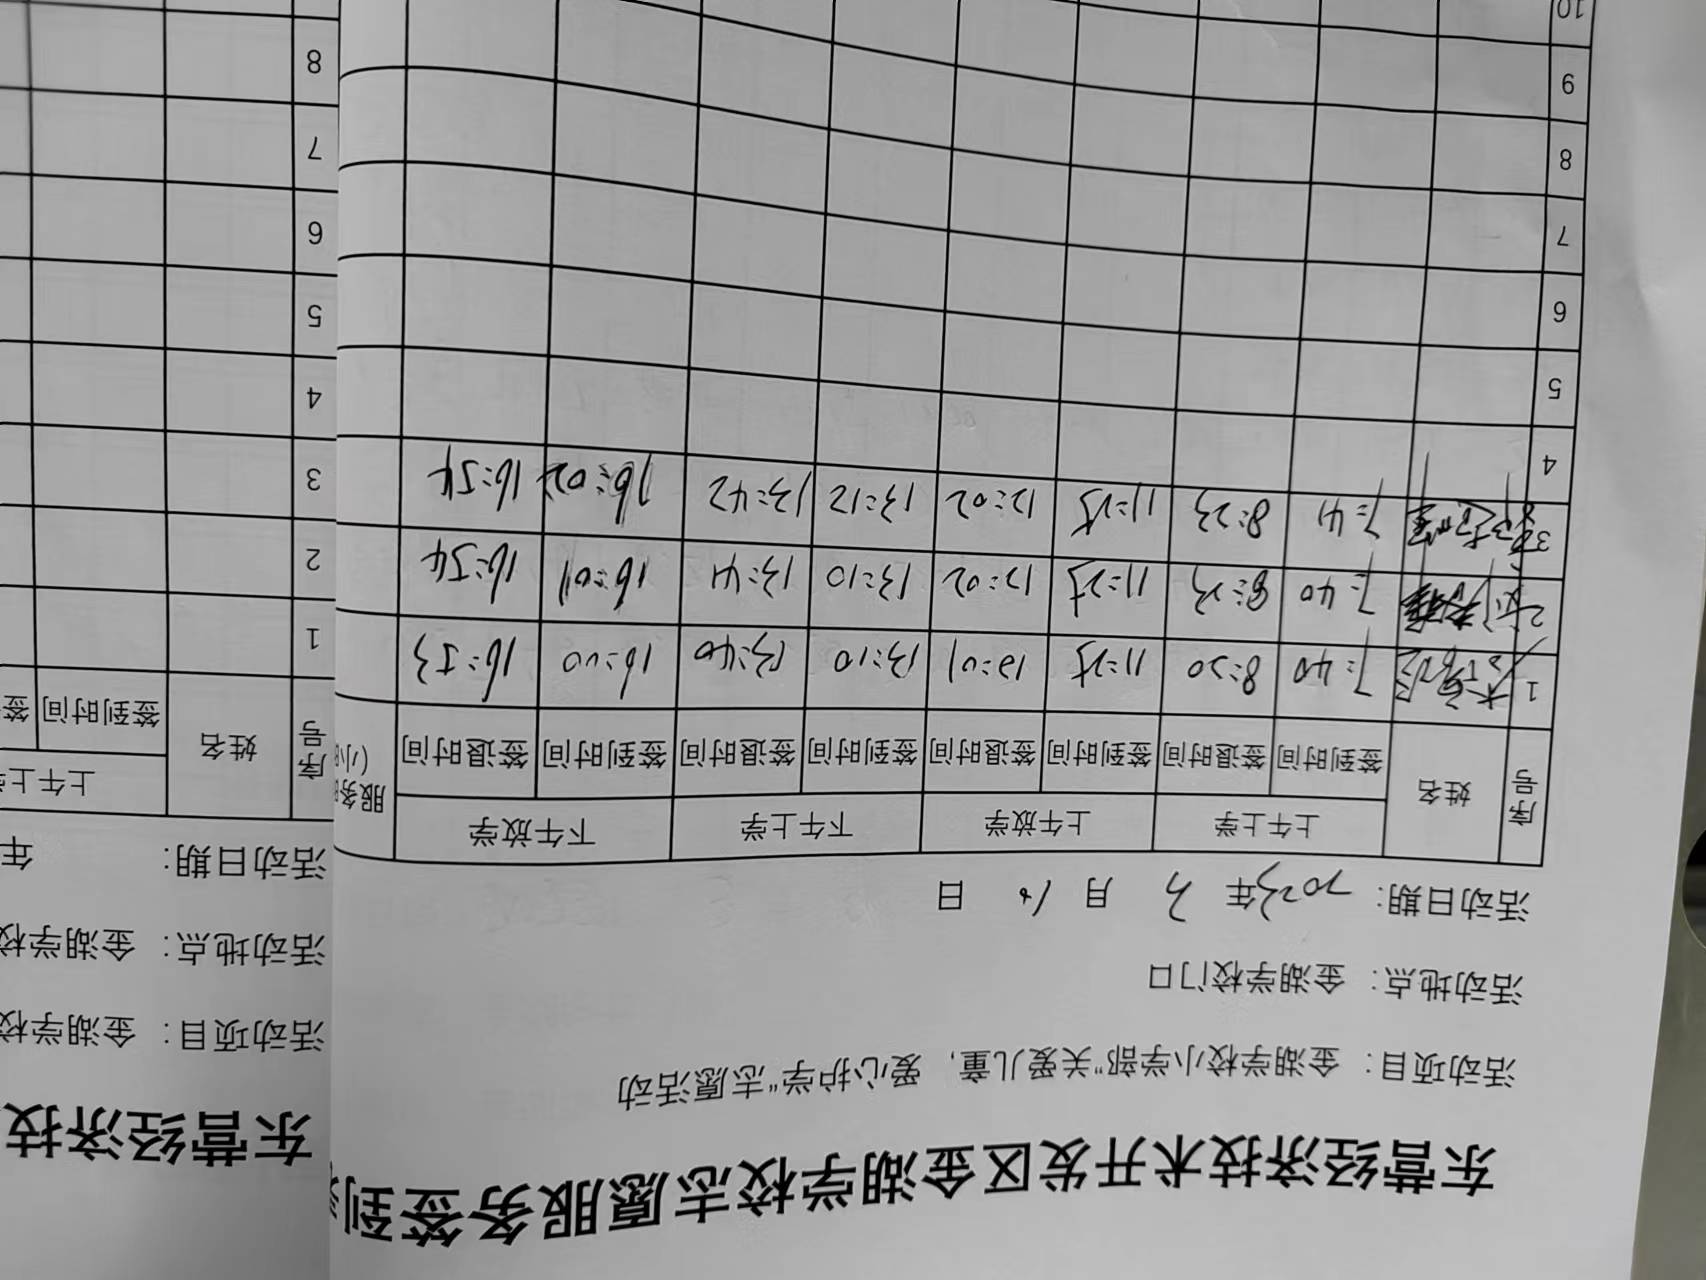 东营经济技术开发区金湖学校志愿服务签到
活动项目：金湖学校小学部“关爱儿童，爱心护学”志愿活动
活动地点：金湖学校门口
活动日期：2023年 3 月 日
序号 姓名 上午上学 上午放学 下午上学 下午放学 服务
签到时间 签退时间 签到时间 签退时间 签到时间 签退时间 签到时间 签退时间
1 7:40 8:20 11:25 12:01 13:10 13:40 16:00 16:53
2 7:40 8:23 11:25 12:02 13:10 13:41 16:01 16:54
3 7:41 8:23 11:25 12:02 13:12 13:42 16:02 16:54
4
5
6
7
8
9
10
东营经济技
活动项目：金湖学校
活动地点：金湖学校
活动日期： 年
序号 姓名 上午上学
签到时间 签
1
2
3
4
5
6
7
8